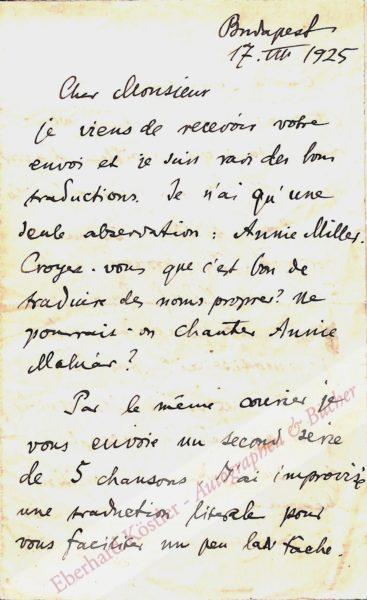 Budapest
17. III 1925
Cher Monsieur
je viens de recevoir votre
envoi et je suis ravi des bons
traductions. Je n'ai qu'une
seule observation : Annie Miller.
Croyez-vous que c'est bon de
traduire des noms propres? Ne
pourrais-on chanter Annie
Molnár?
Par le même courier je
vous envoie un second serie
de 5 chansons J'ai improvizé
une traduction literale pour
vous faciliter un peu la tache.
Eberhard Köstler - Autographen & Bücher